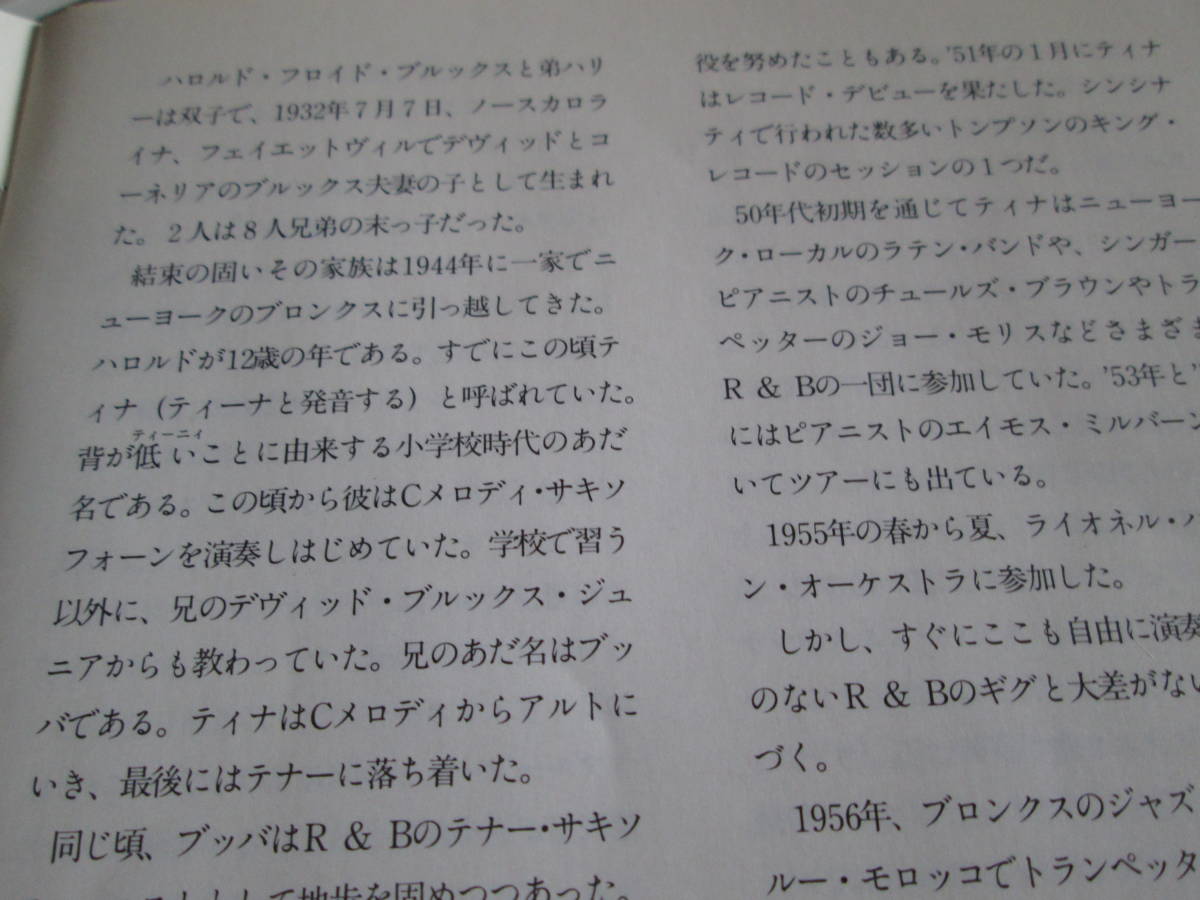 ハロルド・フロイド・ブルックスと弟ハリ
ーは双子で、1932年7月7日、ノースカロラ
イナ、フェイエットヴィルでデヴィッドとコ
ーネリアのブルックス夫妻の子として生まれ
た。2人は8人兄弟の末っ子だった。
結束の固いその家族は1944年に一家でニ
ューヨークのブロンクスに引っ越してきた。
ハロルドが12歳の年である。すでにこの頃テ
ィナ（ティーナと発音する）と呼ばれていた。
ティーニィ
背が低いことに由来する小学校時代のあだ
名である。この頃から彼はCメロディ・サキソ
フォーンを演奏しはじめていた。学校で習う
以外に、兄のデヴィッド・ブルックス・ジュ
ニアからも教わっていた。兄のあだ名はブッ
バである。ティナはCメロディからアルトに
いき、最後にはテナーに落ち着いた。
同じ頃、ブッバはR & Bのテナー・サキソ
として地歩を固めつつあった。
役を努めたこともある。'51年の1月にティナ
はレコード・デビューを果たした。シンシナ
ティで行われた数多いトンプソンのキング・
レコードのセッションの1つだ。
50年代初期を通じてティナはニューヨー
ク・ローカルのラテン・バンドや、シンガー
ピアニストのチュールズ・ブラウンやトラ
ペッターのジョー・モリスなどさまざま
R & Bの一団に参加していた。'53年と'
にはピアニストのエイモス・ミルバーン
いてツアーにも出ている。
1955年の春から夏、ライオネル・ハ
ン・オーケストラに参加した。
しかし、すぐにここも自由に演奏
のないR & Bのギグと大差がない
づく。
1956年、ブロンクスのジャズ
ルー・モロッコでトランペッタ